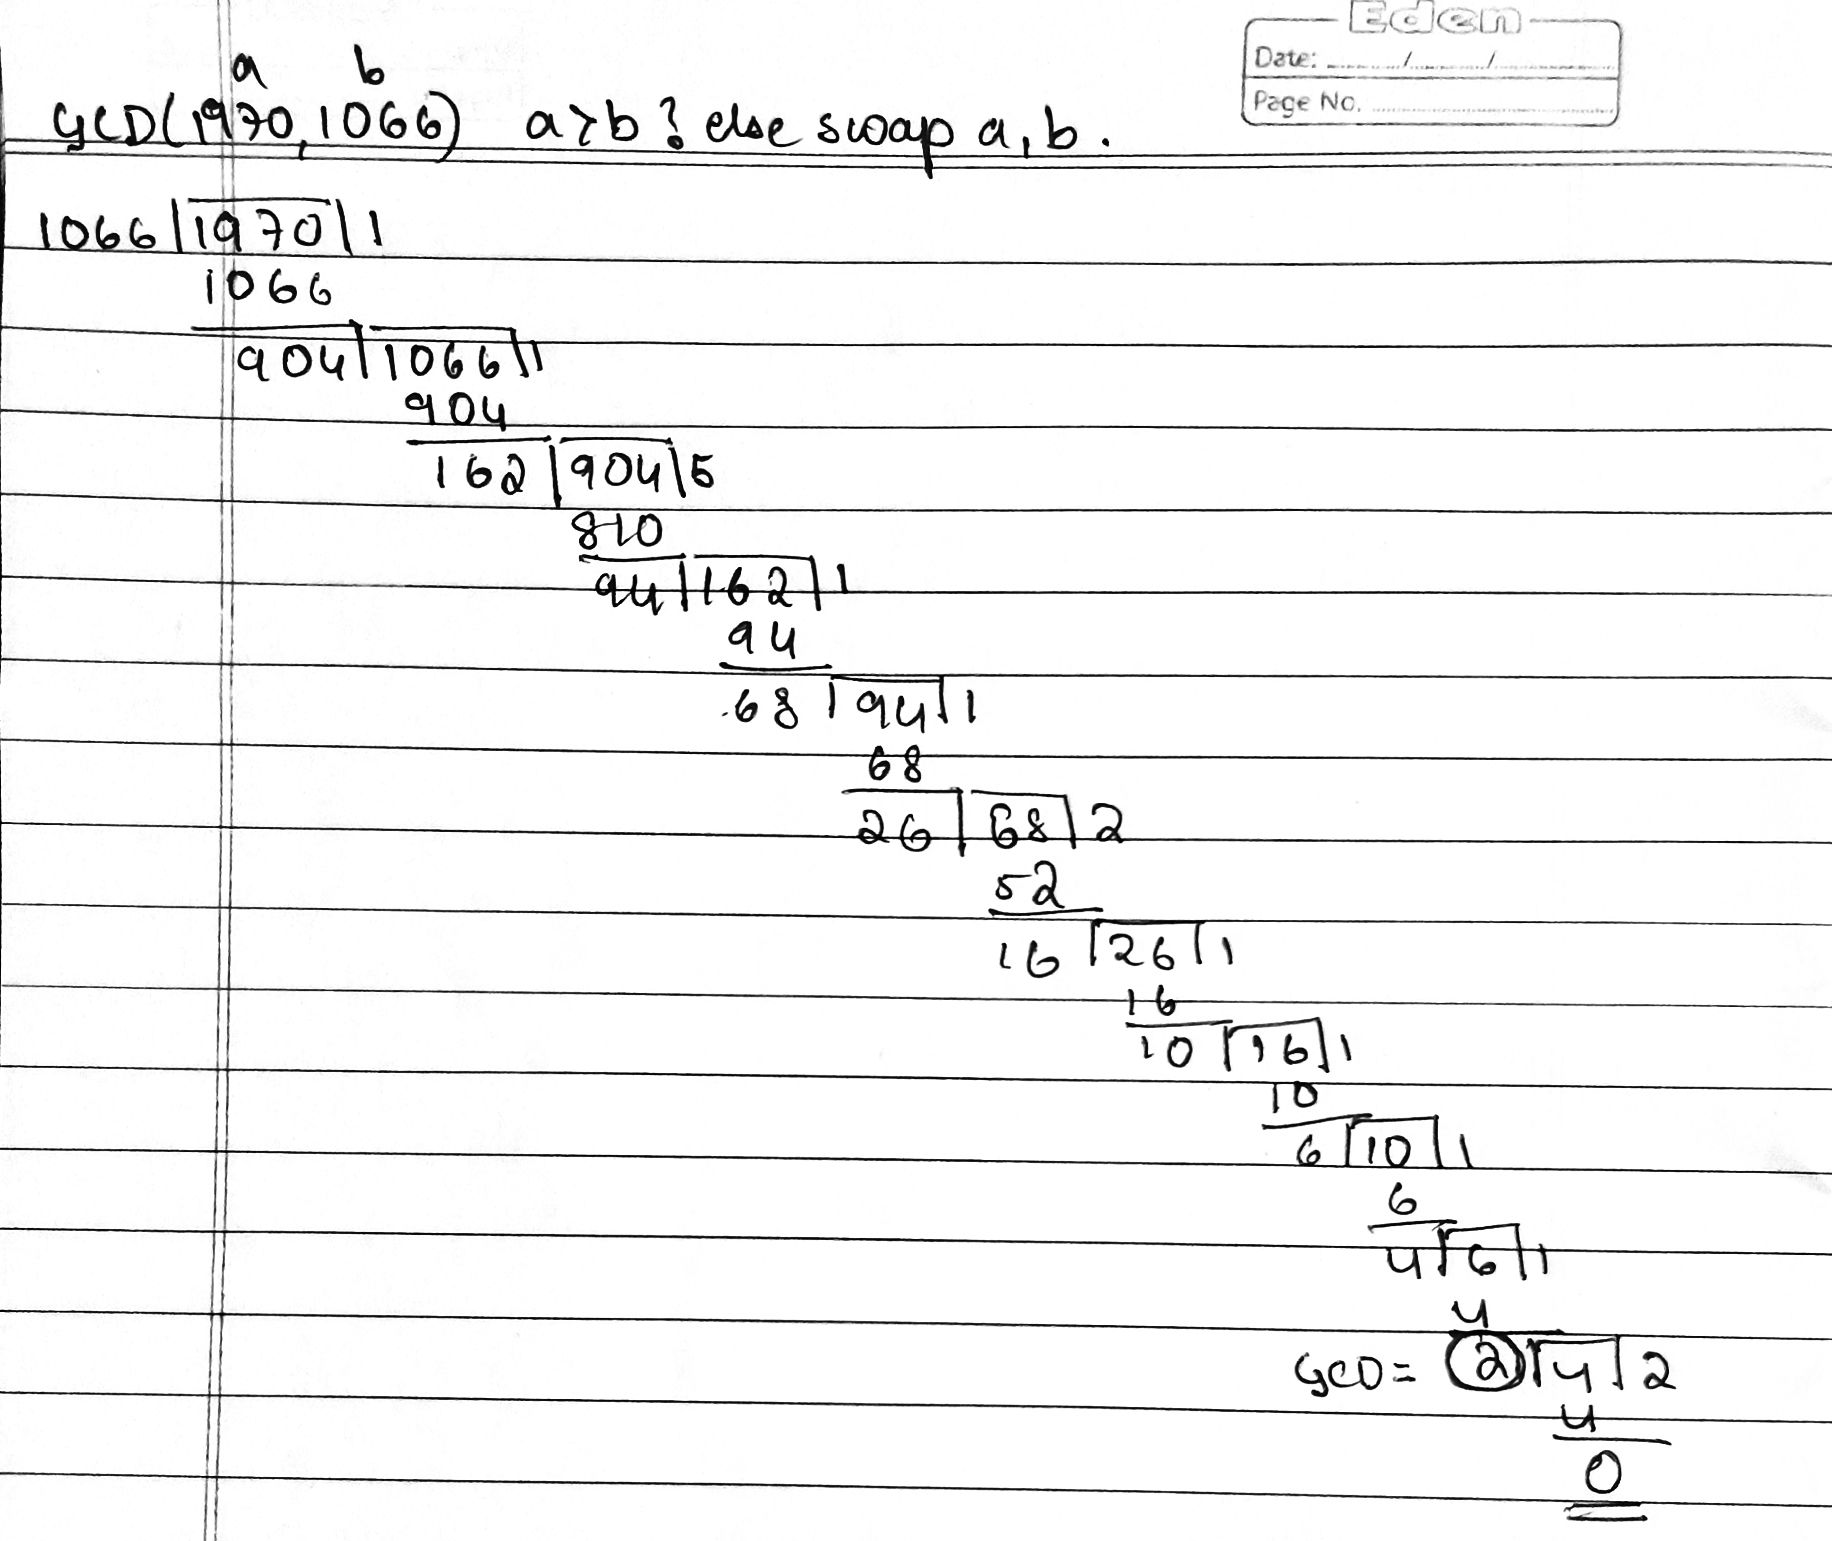 Eden
Date: ......../......../........
Page No. ........
a b
GCD(1970,1066) a>b? else swap a,b.
1066 | 1970 | 1
1066
904 | 1066 | 1
904
162 | 904 | 5
810
94 | 162 | 1
94
68 | 94 | 1
68
26 | 68 | 2
52
16 | 26 | 1
16
10 | 16 | 1
10
6 | 10 | 1
6
4 | 6 | 1
4
GCD = 2 | 4 | 2
4
0